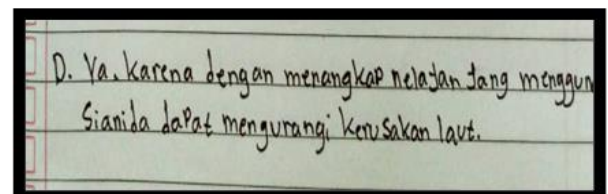 D. Ya. karena dengan menangkap nelayan yang menggun
Sianida dapat mengurangi kerusakan laut.